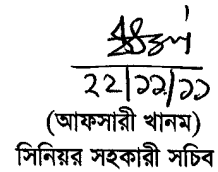 ২২|১১|১১
(আফসারী খানম)
সিনিয়র সহকারী সচিব